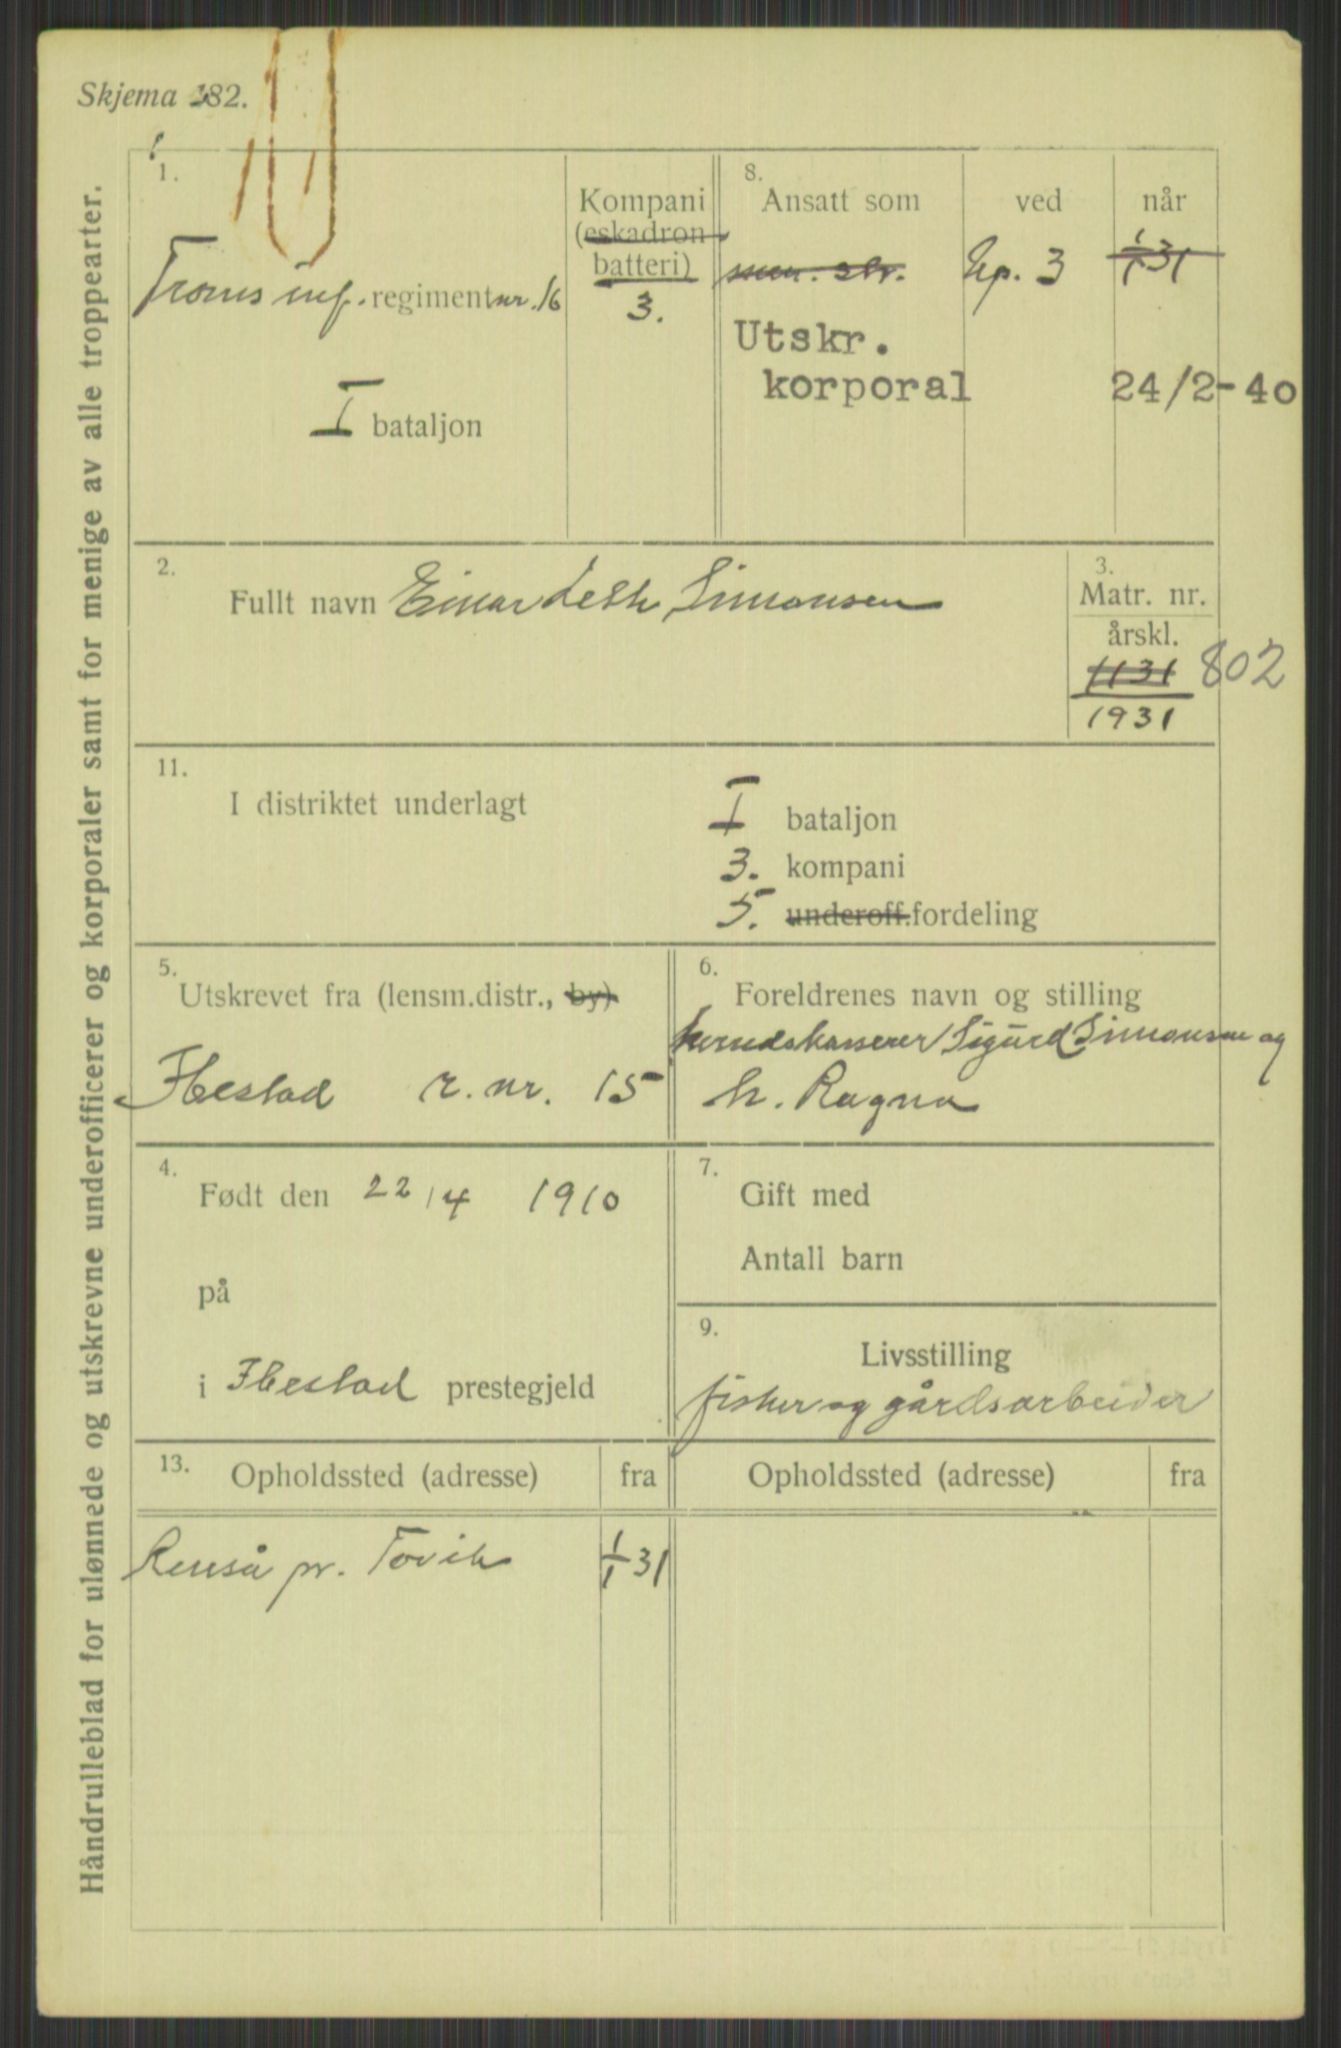 Skjema 182.
Håndrulleblad for ulønnede og utskrevne underofficerer og korporaler samt for menige av alle troppearter.
1.
Troms inf. regiment nr. 16
I bataljon
Kompani
(eskadron
batteri)
3.
8.
Ansatt som ved når
men. str. Kp. 3 1/1 31
Utskr.
korporal 24/2-40
2.
Fullt navn Einar Leth Simonsen
3.
Matr. nr.
årskl.
1131 802
1931
11.
I distriktet underlagt
I bataljon
3. kompani
5. underoff.fordeling
5.
Utskrevet fra (lensm.distr., by)
Ibestad r. nr. 15
6.
Foreldrenes navn og stilling
herredskasserer Sigurd Simonsen og
h. Ragna
4.
Født den 22/4 1910
på
i Ibestad prestegjeld
7.
Gift med
Antall barn
9.
Livsstilling
fisker og gårdsarbeider
13.
Opholdssted (adresse) fra Opholdssted (adresse) fra
Renså pr. Tovik 1/1 31